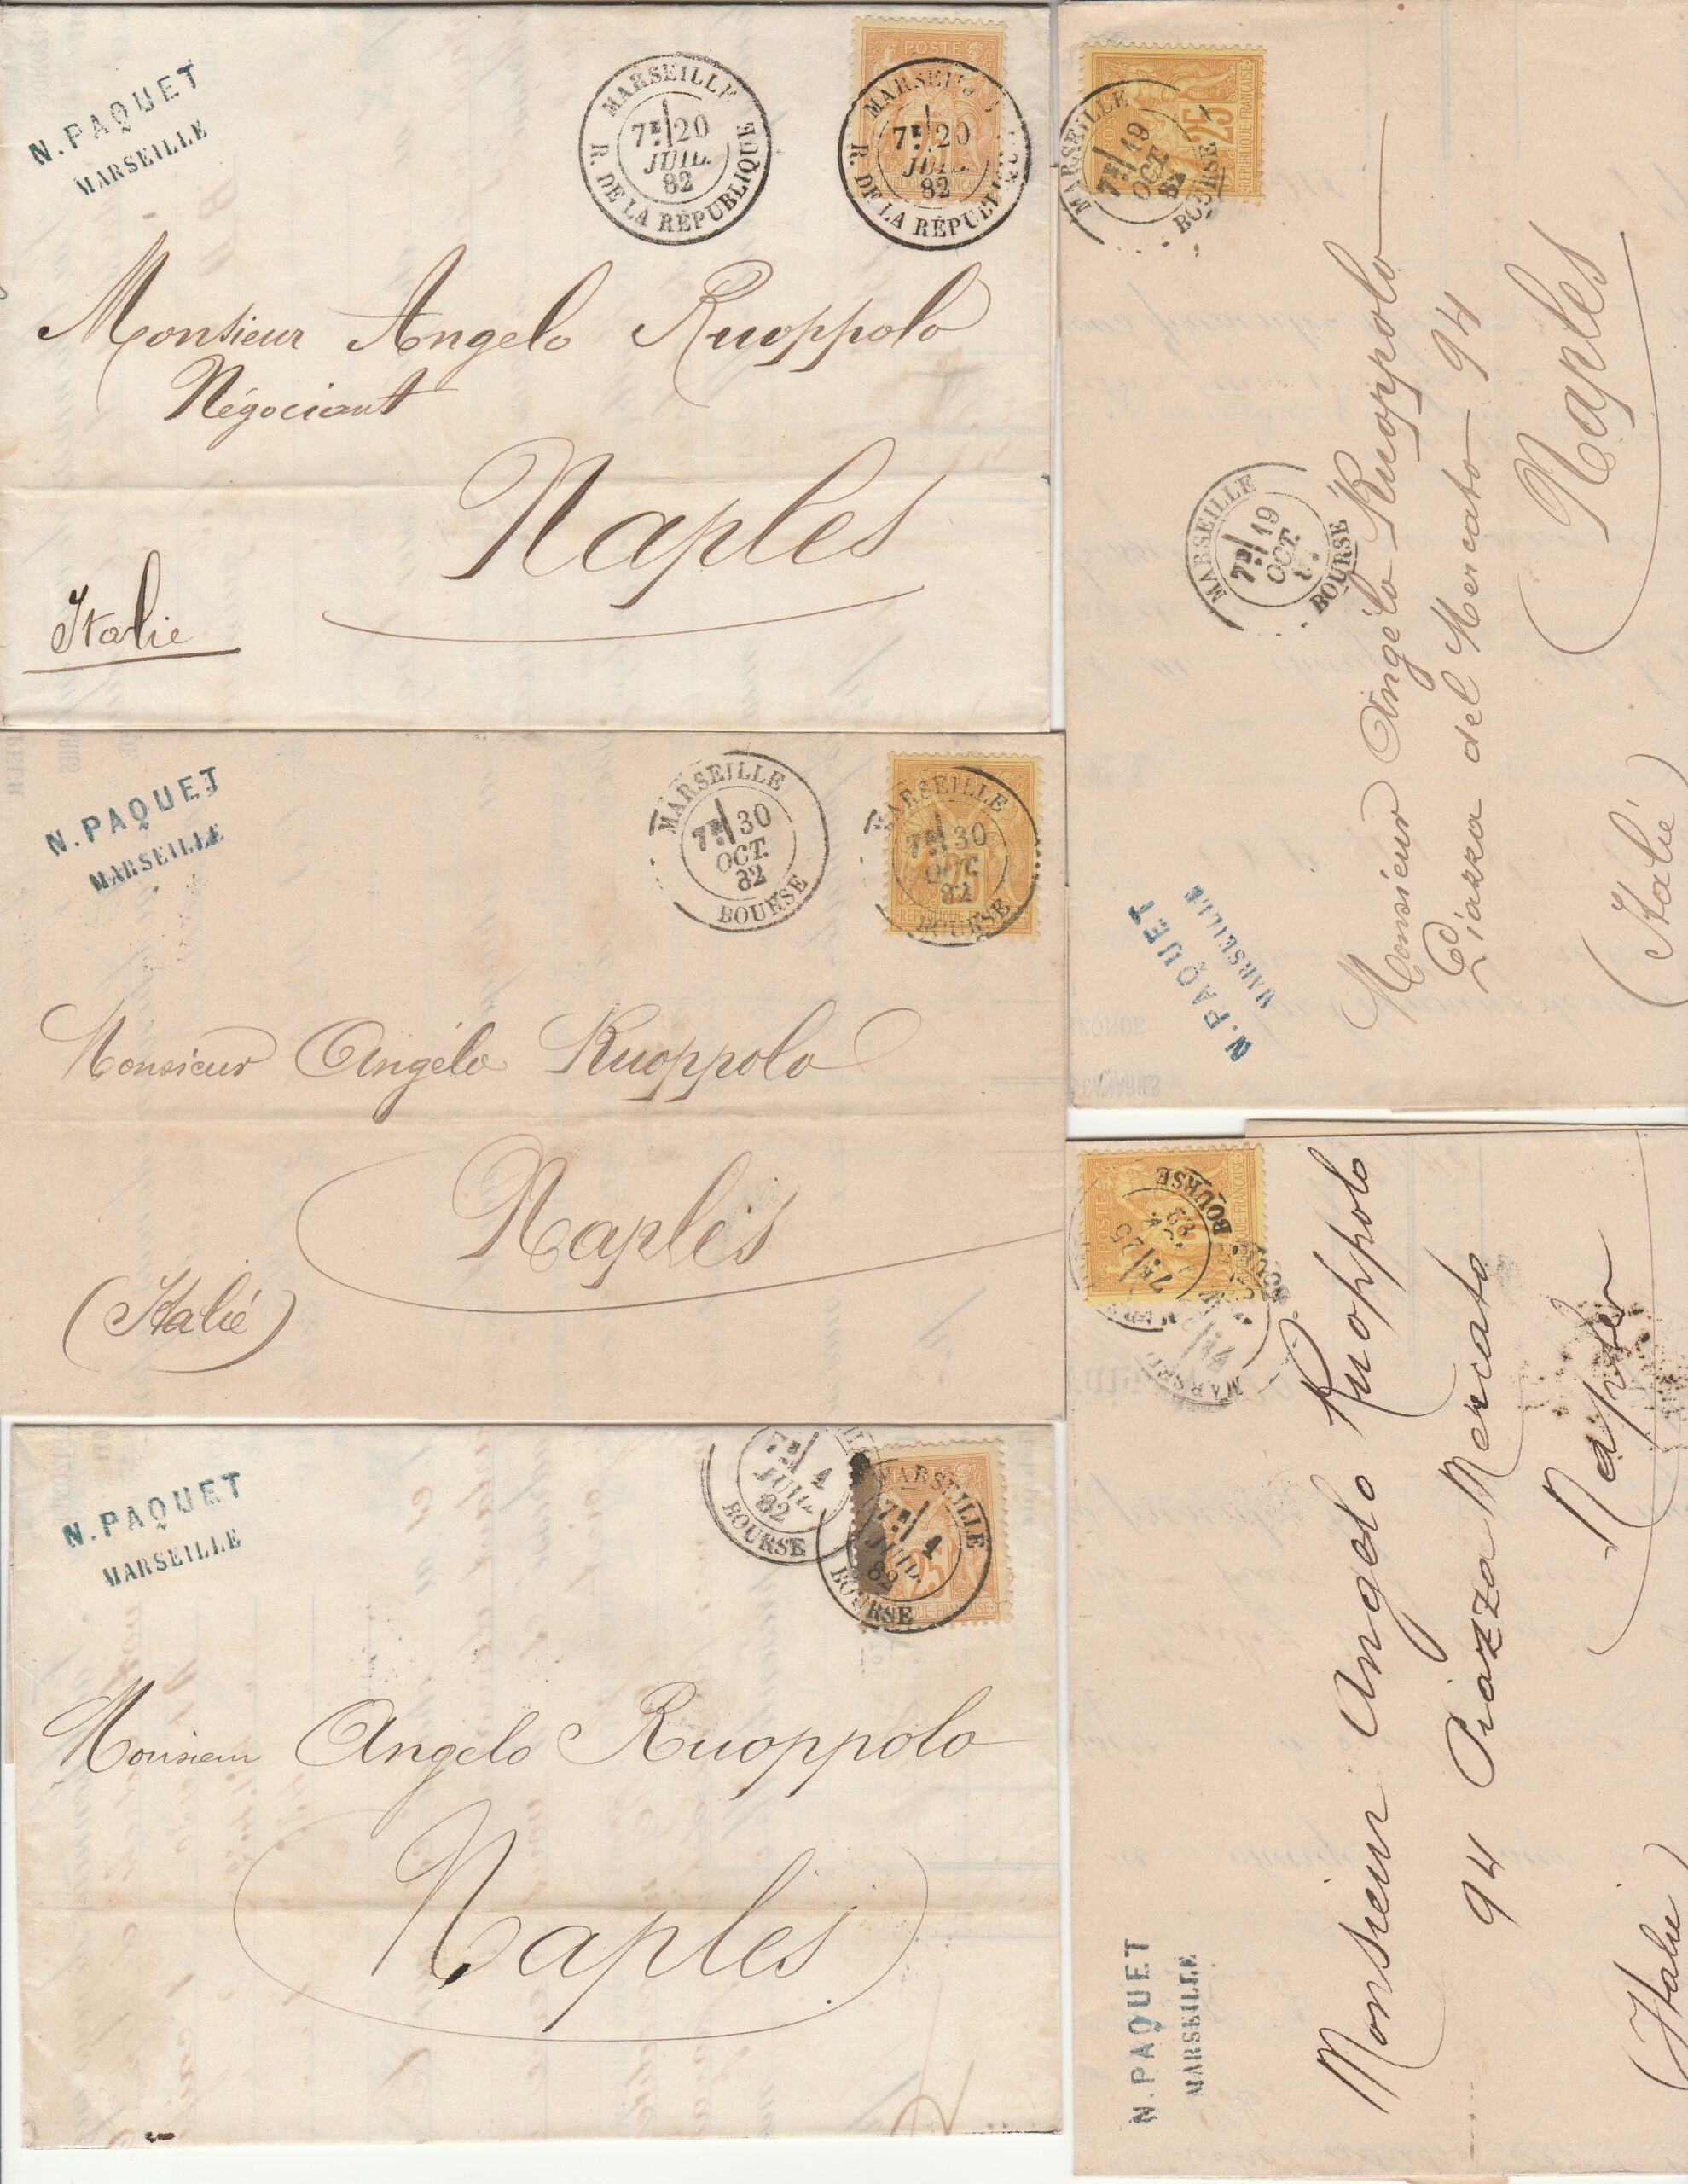 N. PAQUET
MARSEILLE
MARSEILLE
7E 20
JUIL.
82
R. DE LA RÉPUBLIQUE
POSTE
MARSEILLE
7E 20
JUIL.
82
R. DE LA RÉPUBLIQUE
Monsieur Angelo Ruoppolo
Négociant
Naples
Italie
N. PAQUET
MARSEILLE
MARSEILLE
7E 30
OCT.
82
BOURSE
MARSEILLE
7E 30
OCT.
82
BOURSE
25
REPUBLIQUE
Monsieur Angélo Ruoppolo
Naples
(Italie)
N. PAQUET
MARSEILLE
7E 1
JUIL.
82
BOURSE
MARSEILLE
7E 1
JUIL.
82
BOURSE
25
FRANÇAISE
Monsieur Angelo Ruoppolo
Naples
25
REPUBLIQUE FRANÇAISE
MARSEILLE
7E 19
OCT.
82
BOURSE
MARSEILLE
7E 19
OCT.
BOURSE
N. PAQUET
MARSEILLE
Monsieur Angélo Ruoppolo
Piazza del Mercato 94
Naples
(Italie)
POSTE
FRANÇAISE
7E 25
82
BOURSE
N. PAQUET
MARSEILLE
Monsieur Angelo Ruoppolo
94 Piazza Mercato
Naples
(Italie)